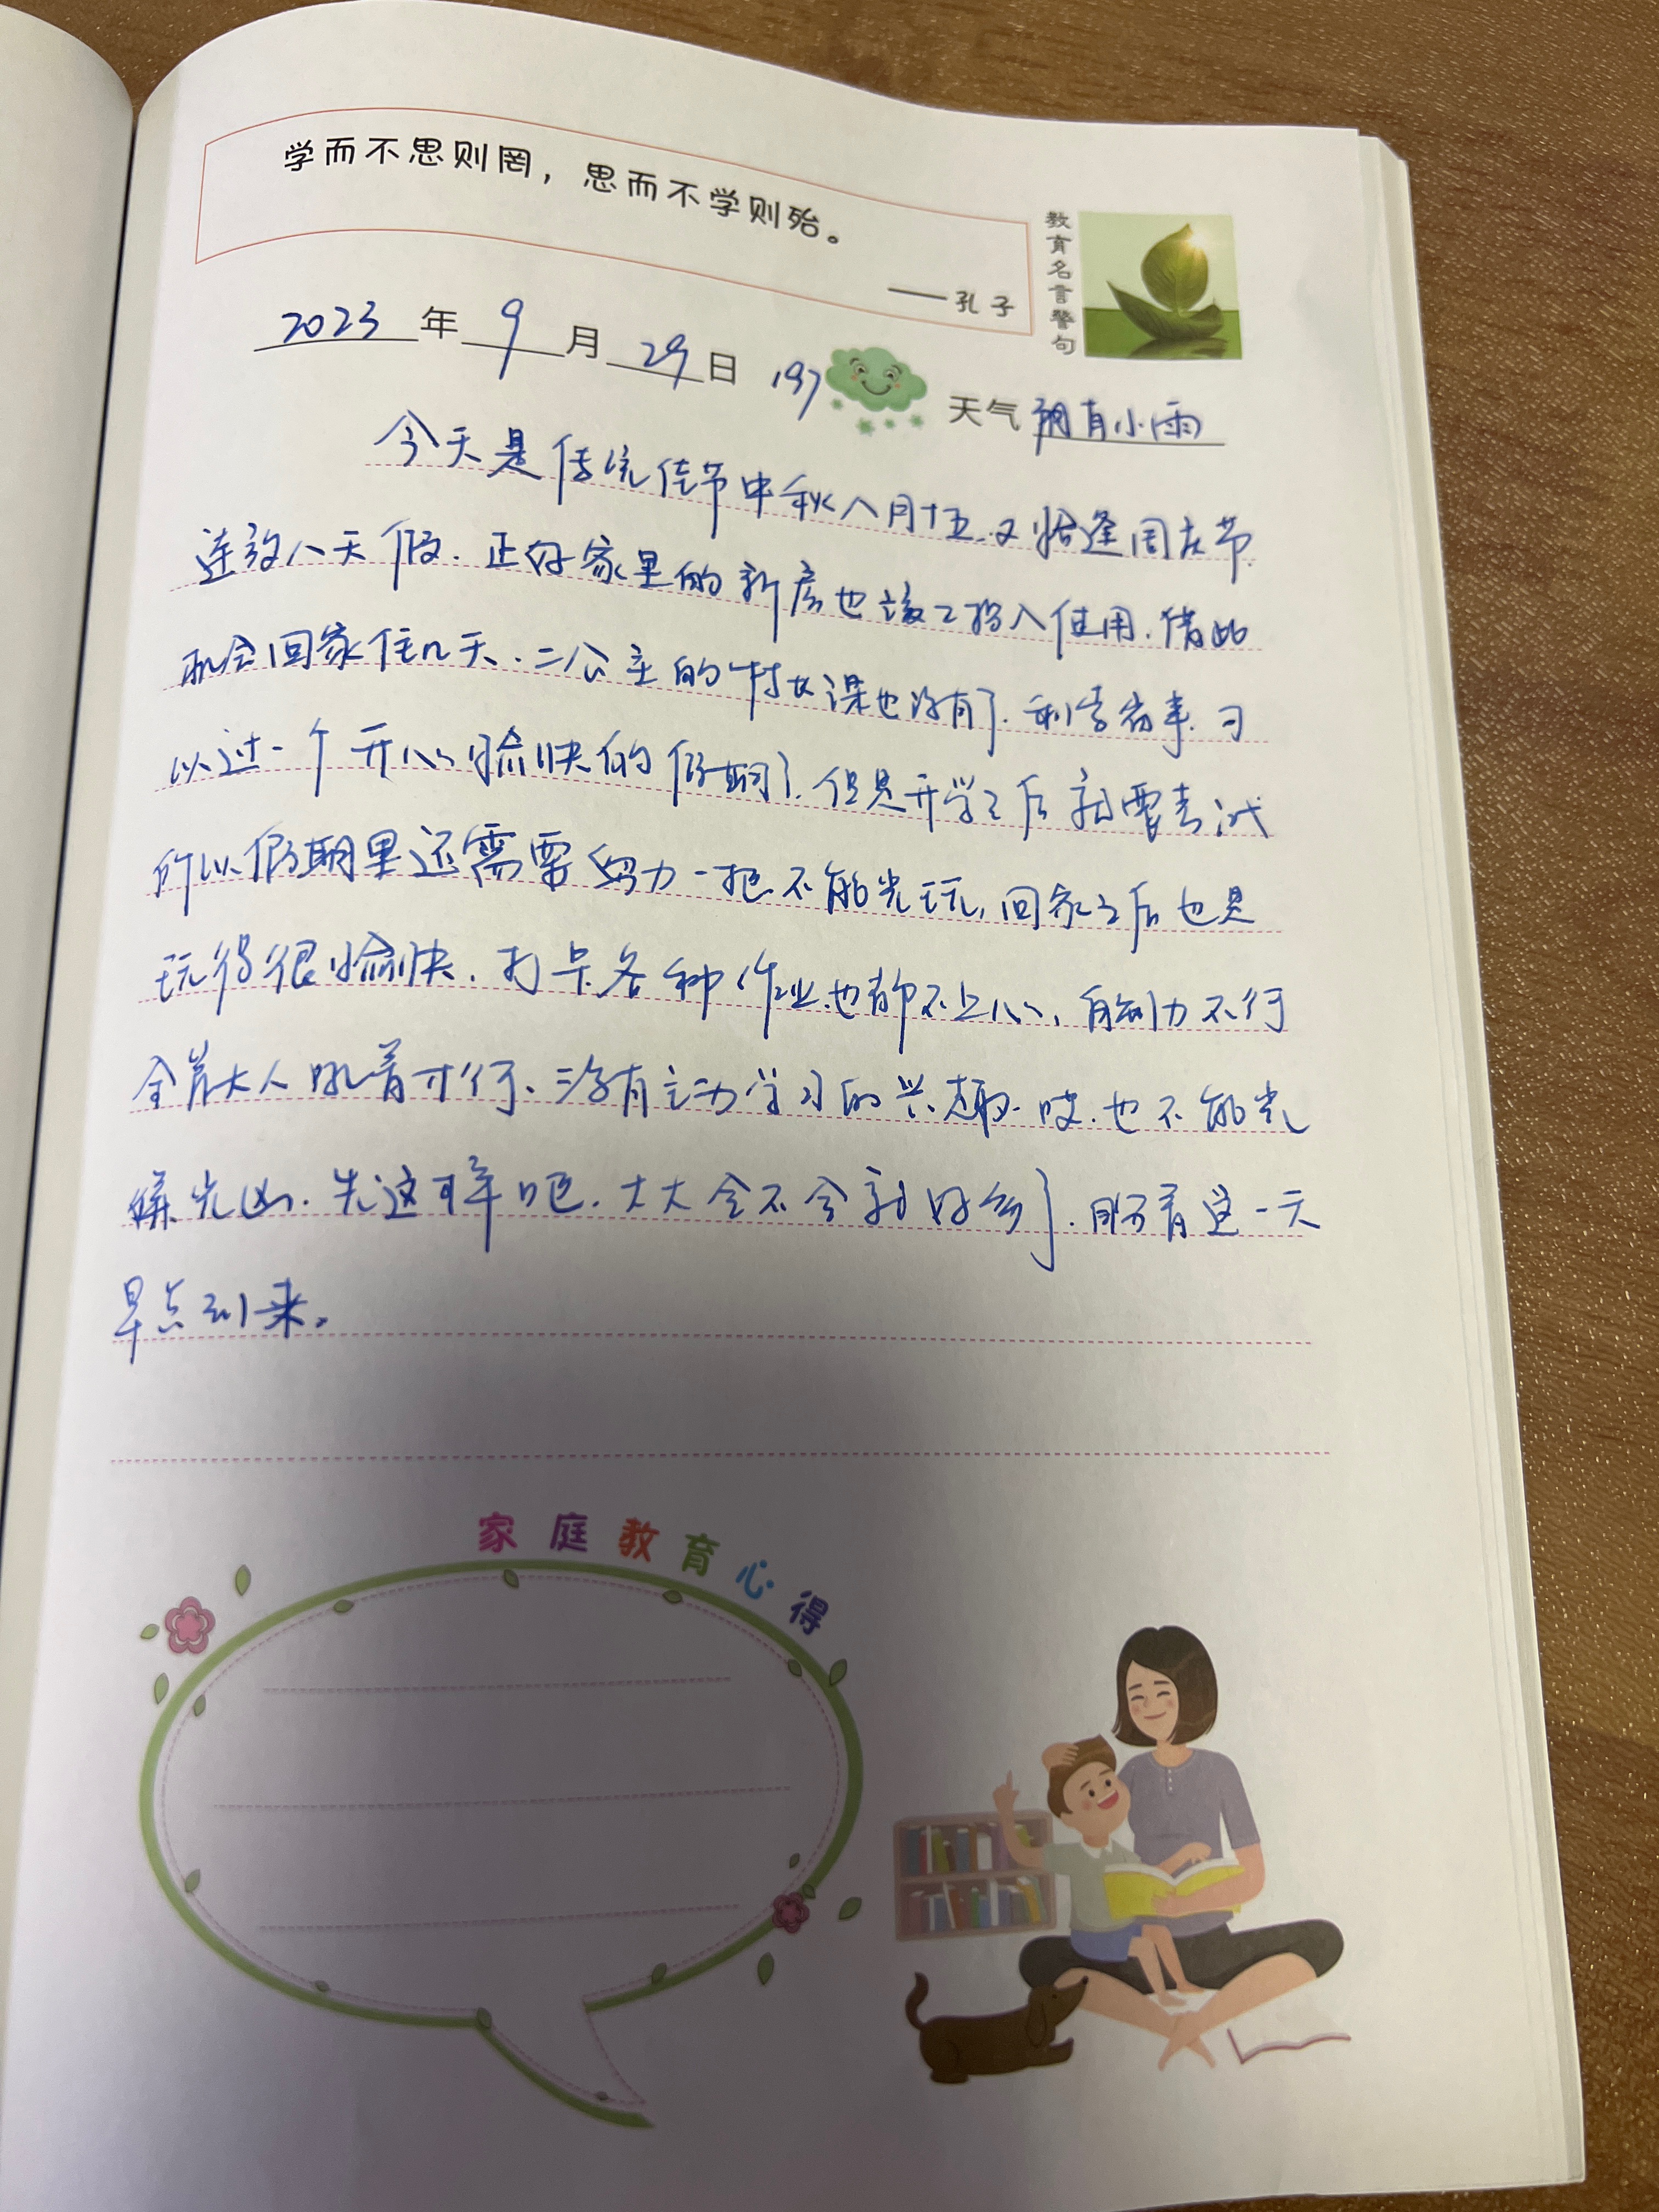 学而不思则罔，思而不学则殆。
——孔子
教育名言警句
2023年9月29日 197
天气 阴有小雨
今天是传统佳节中秋八月十五.又恰逢国庆节.
连放八天假.正好家里的新房也该投入使用.借此
机会回家住几天.二公主的特长课也没有了.利索省事.可
以过一个开心愉快的假期了.但是开学之后就要考试
所以假期里还需要努力一把不能光玩,回家之后也是
玩得很愉快.打卡各种作业也都不上心、自制力不行
全靠大人吼着才行、没有主动学习的兴趣.哎.也不能光
嫌光凶.先这样吧.大大会不会就好多了.盼着这一天
早点到来。
家庭教育心得